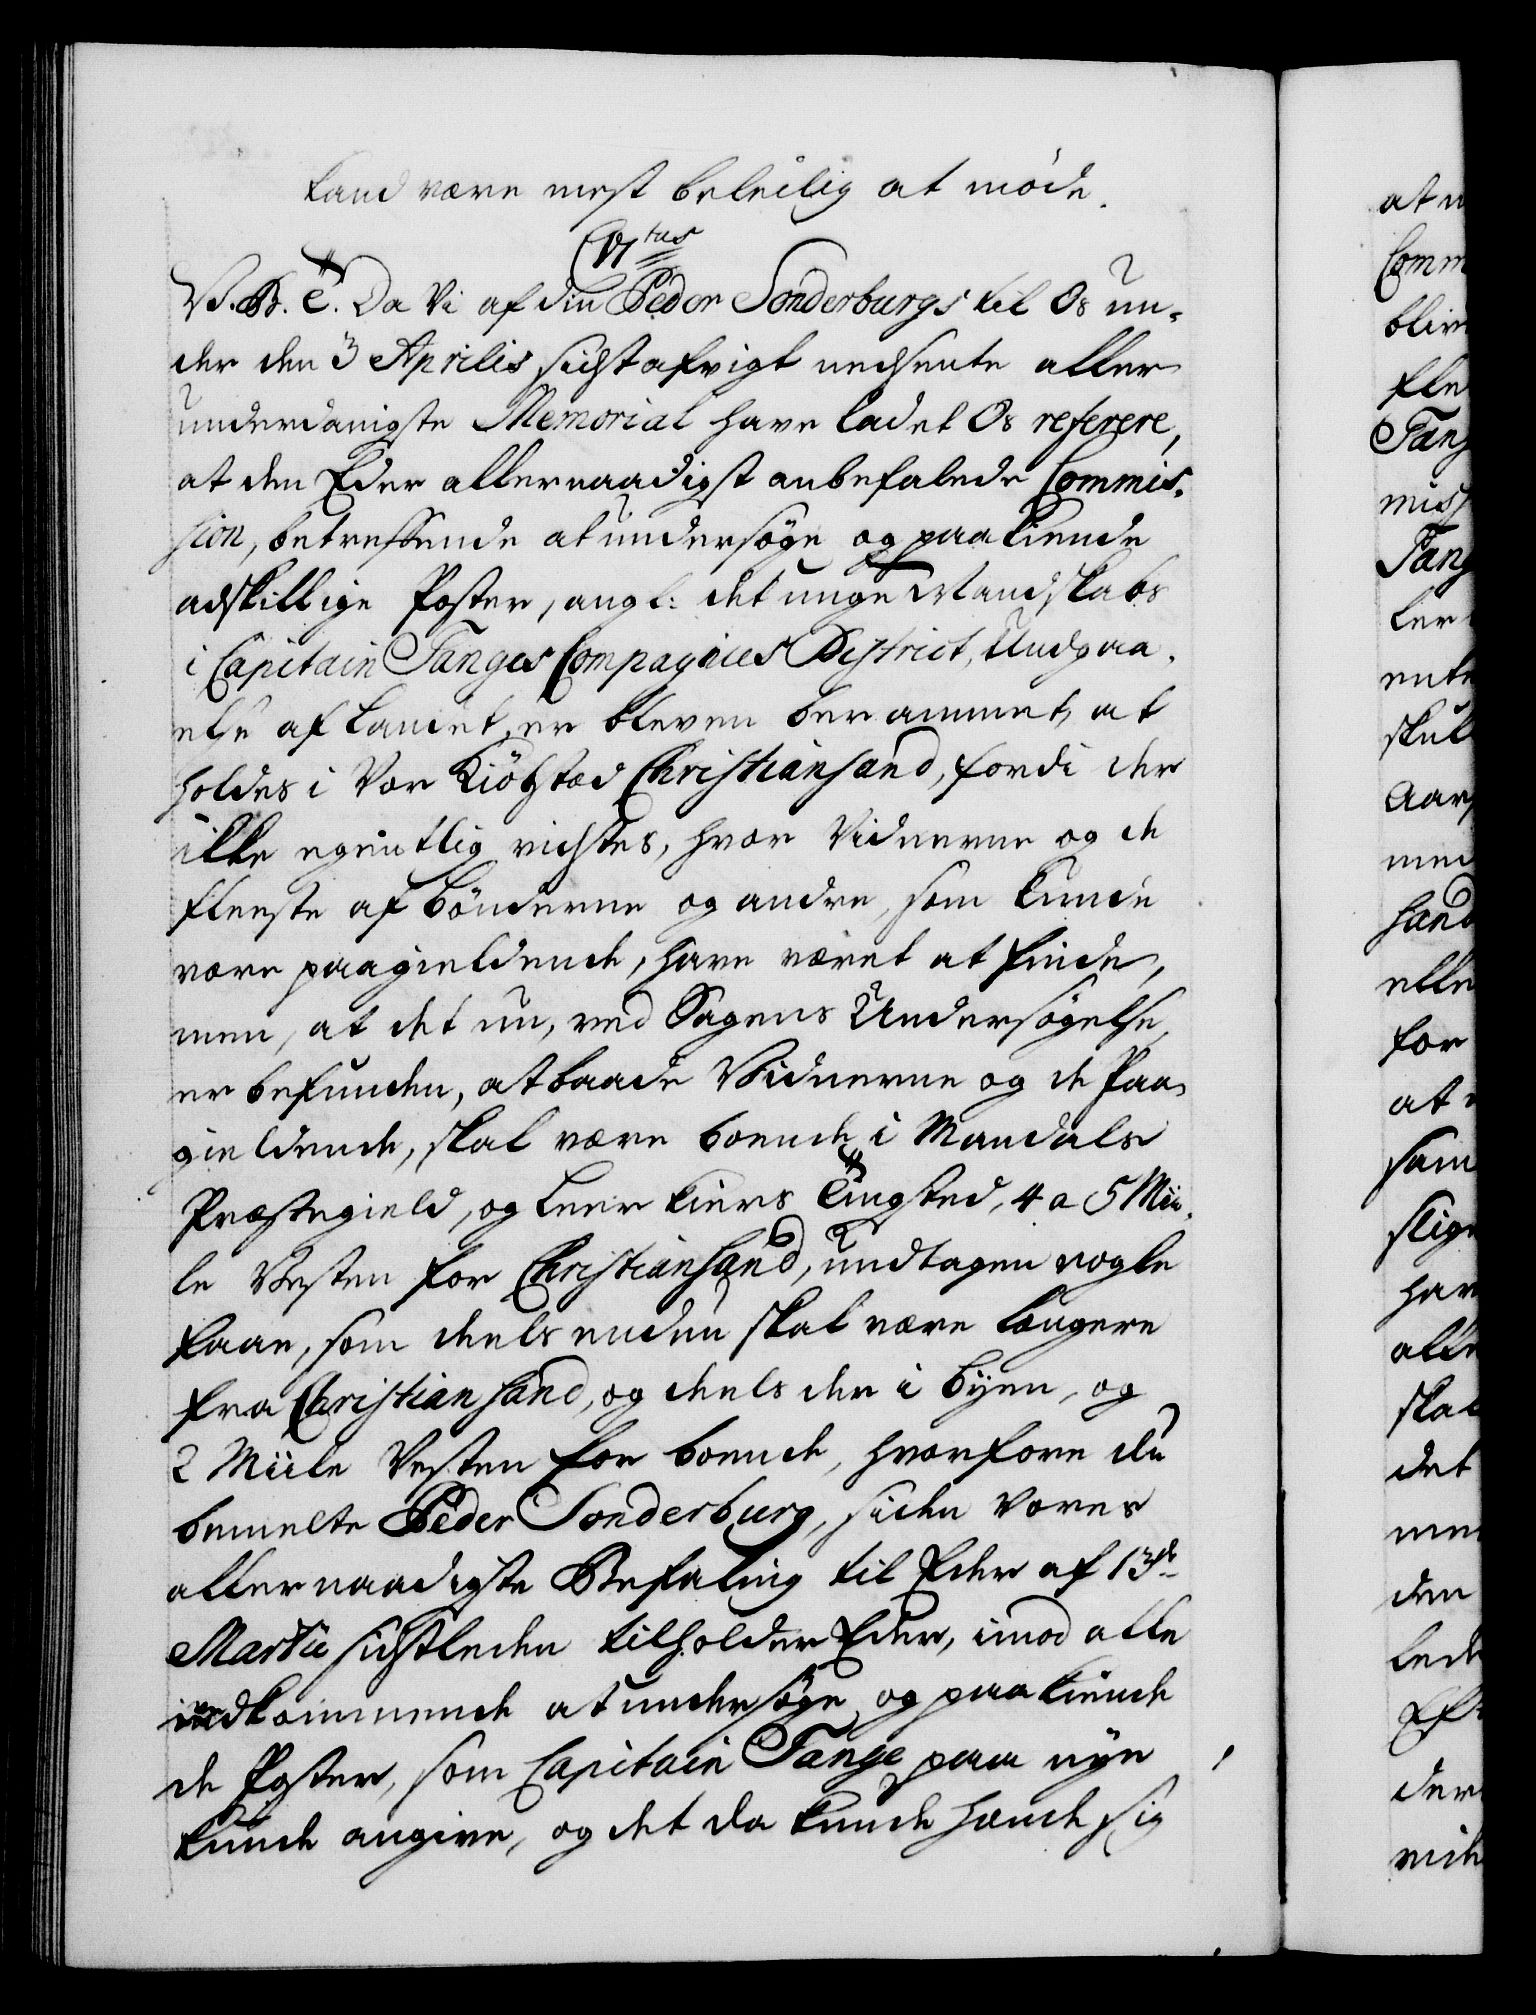 kand være mest beleilig at møde.
C VI tus
V. B. C. Da Vi af din Peder Sonderburgs til Os un-
der den 3 Aprilis sidstafvigt nedsente aller
underdanigste Memorial have ladet Os referere,
at den Eder allernaadigst anbefalede Commis-
sion, betreffende at undersøge og paakiende
adskillige Poster, angl: det unge Mandskabs
i Capitain Tanges Compagnies District, Undgaa-
else af Landet, er bleven berammet at
holdes i Vor Kiöbstæd Christiansand, fordi der
ikke egentlig vidstes, hvor Vidnerne og de
fleeste af bönderne og andre, som kunde
være paagieldende, have været at finde,
men, at det nu, ved Sagens Undersögelse,
er befunden, at baade Vidnerne og de Paa-
gieldende, skal være boende i Mandals
Præstegield, og Leer kiers tingsted, 4 a 5 Mii-
le Vesten for Christiansand, undtagen nogle
faae, som deels endnu skal være længere
fra Christiansand, og deels der i byen, og
2 Miile Vesten for boende, hvorfore du
bemelte Peder Sonderburg, siden Vores
allernaadigste Befaling til Eder af 13de
Martii sidstleden tilholder Eder, imod alle
indkommende at undersøge og paakiende
de Poster, som Capitain Tange paa nye
kunde angive, og det da kunde hænde sig
at
Comm
bliv
fle
Tang
miss
Tang
ler
ente
skul
Aar
med
hand
elle
for
at
sam
slige
har
alle
skal
det
me
den
lede
Eft
der
vid